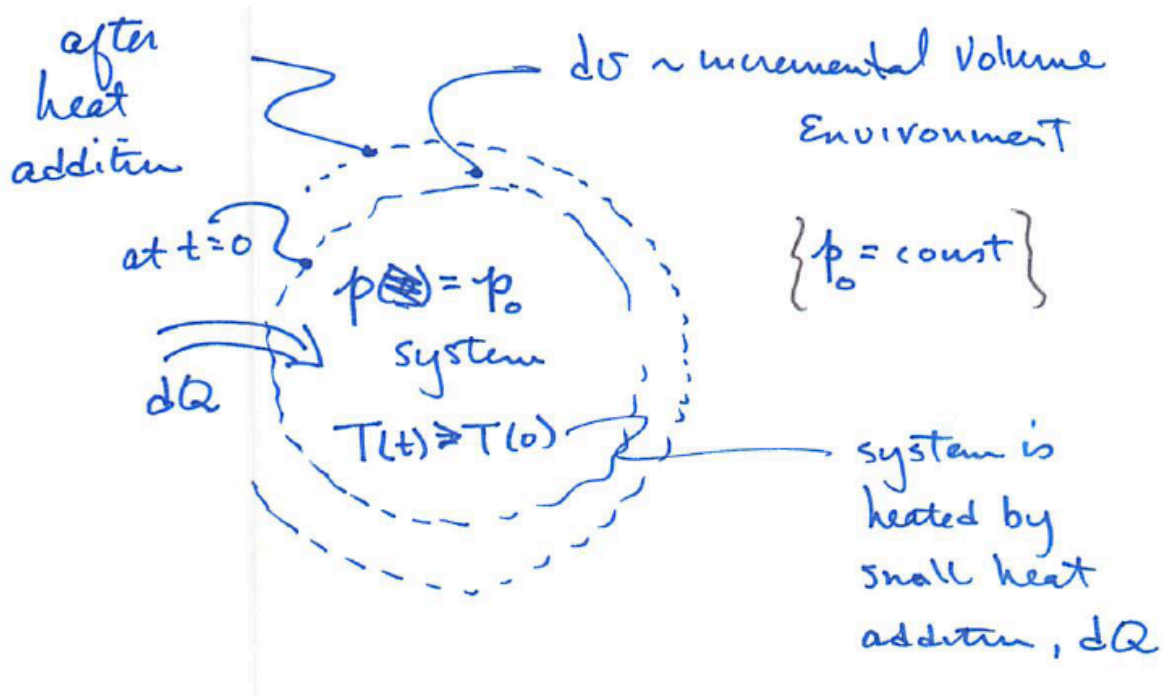 after
heat
addition
dv ~ incremental volume
Environment
{p₀ = const}
at t=0
p( ) = p₀
system
dQ
T(t) > T(0)
system is
heated by
small heat
addition, dQ